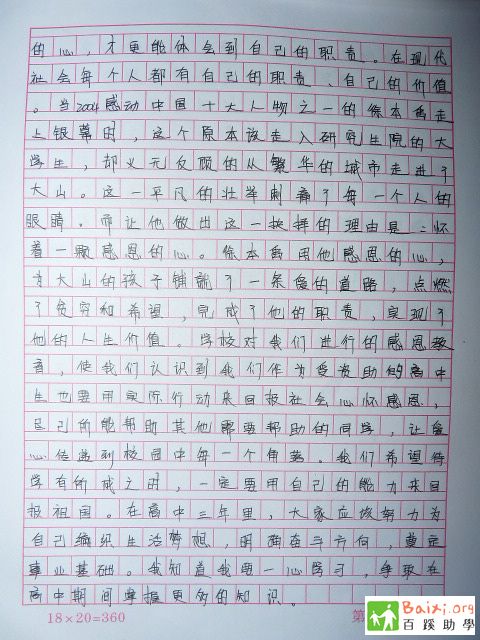 的心，才更能体会到自己的职责。在现代
社会每个人都有自己的职责、自己的价值
。当2004感动中国十大人物之一的徐本禹走
上银幕时，这个原本该走入研究生院的大
学生，却义无反顾的从繁华的城市走进了
大山。这一平凡的壮举刺痛了每一个人的
眼睛。而让他做出这一抉择的理由是：怀
着一颗感恩的心。徐本禹用他感恩的心，
为大山的孩子铺就了一条爱的道路，点燃
了贫穷和希望，完成了他的职责，实现了
他的人生价值。学校对我们进行的感恩教
育，使我们认识到我们作为受资助的高中
生也要用实际行动来回报社会心怀感恩，
尽己所能帮助其他需要帮助的同学，让爱
心传递到校园中每一个角落。我们希望待
学有所成之时，一定要用自己的能力来回
报祖国。在高中三年里，大家应该努力为
自己编织生活梦想，明确奋斗方向，奠定
事业基础。我知道我要一心学习，争取在
高中期间掌握更多的知识。
18×20=360 第
Baixi.org
百蹊助學